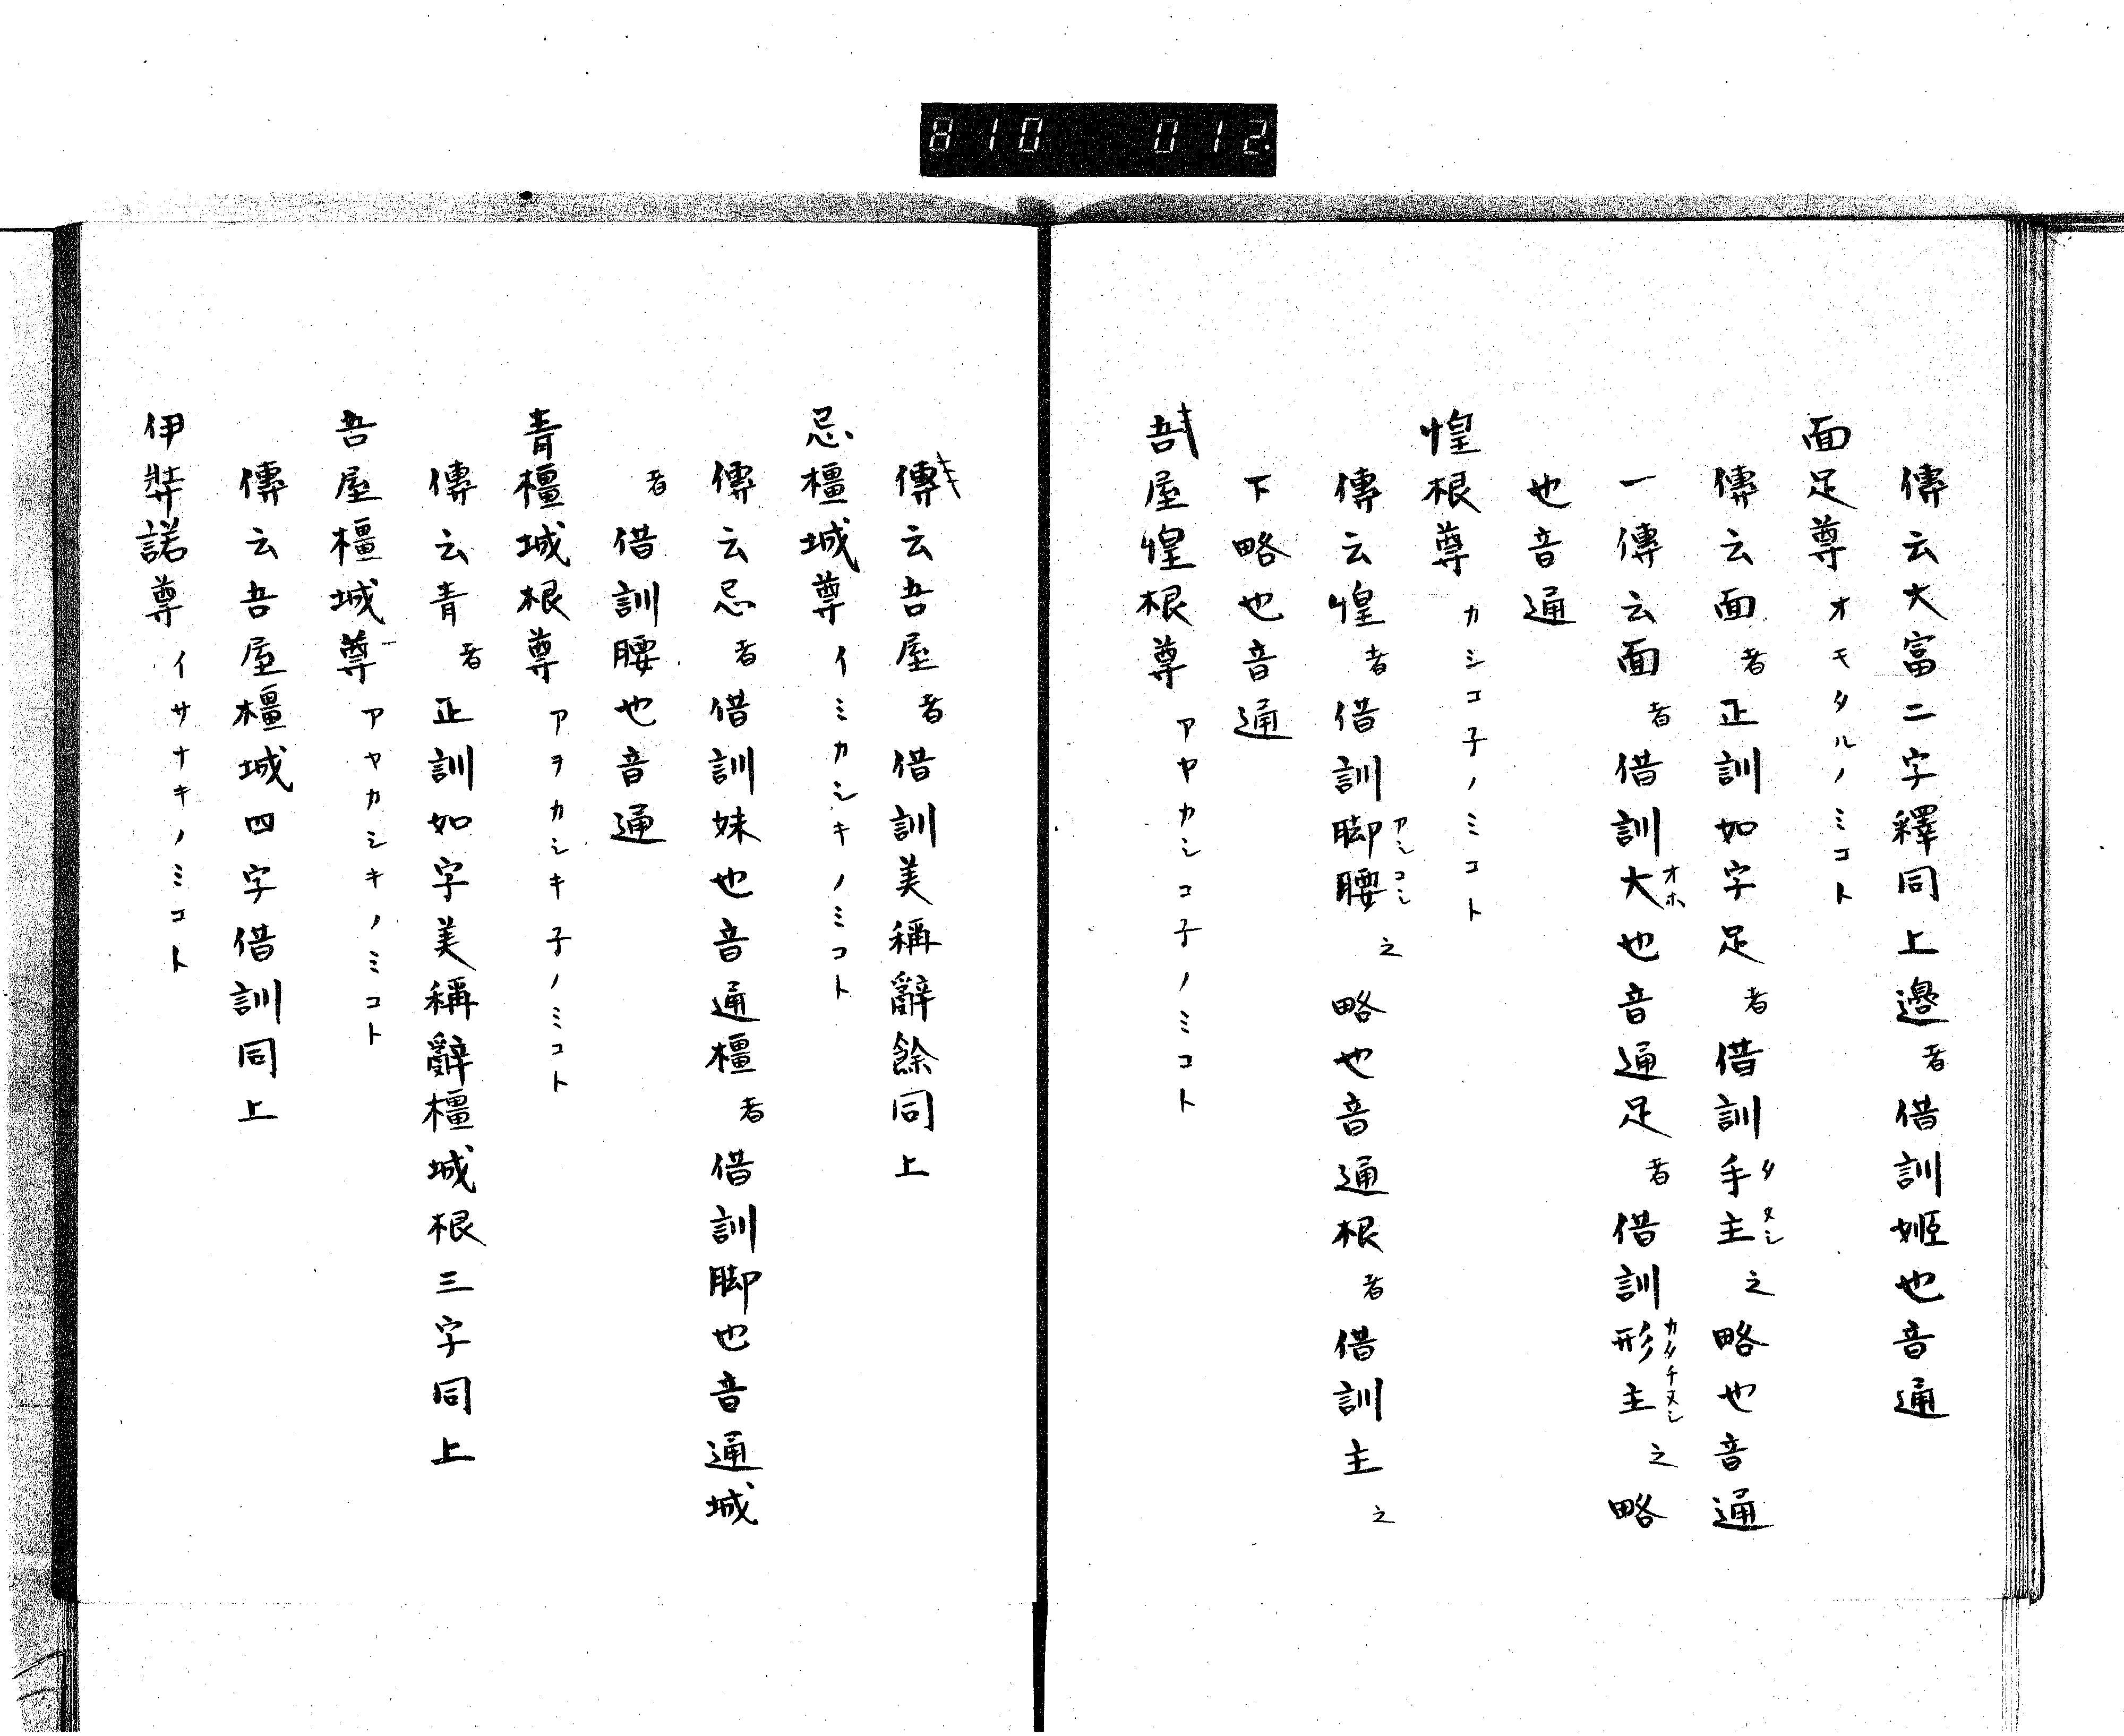 810 012.
傳云大富二字釋同上邉者借訓姫也音通
面足尊オモタルノミコト
傳云面者正訓如字足者借訓手主之略也音通
タヌシ
一傳云面者借訓大也音通足者借訓形主之略
オホ カタチヌシ
也音通
惶根尊カシコ子ノミコト
傳云惶者借訓脚腰之略也音通根者借訓主之
アシコシ
下略也音通
吾屋惶根尊アヤカシコ子ノミコト
傳云吾屋者借訓美稱辭餘同上
忌橿城尊イミカシキノミコト
傳云忌者借訓妹也音通橿者借訓脚也音通城
者借訓腰也音通
青橿城根尊アヲカシキ子ノミコト
傳云青者正訓如字美稱辭橿城根三字同上
吾屋橿城尊アヤカシキノミコト
傳云吾屋橿城四字借訓同上
伊弉諾尊イサナキノミコト